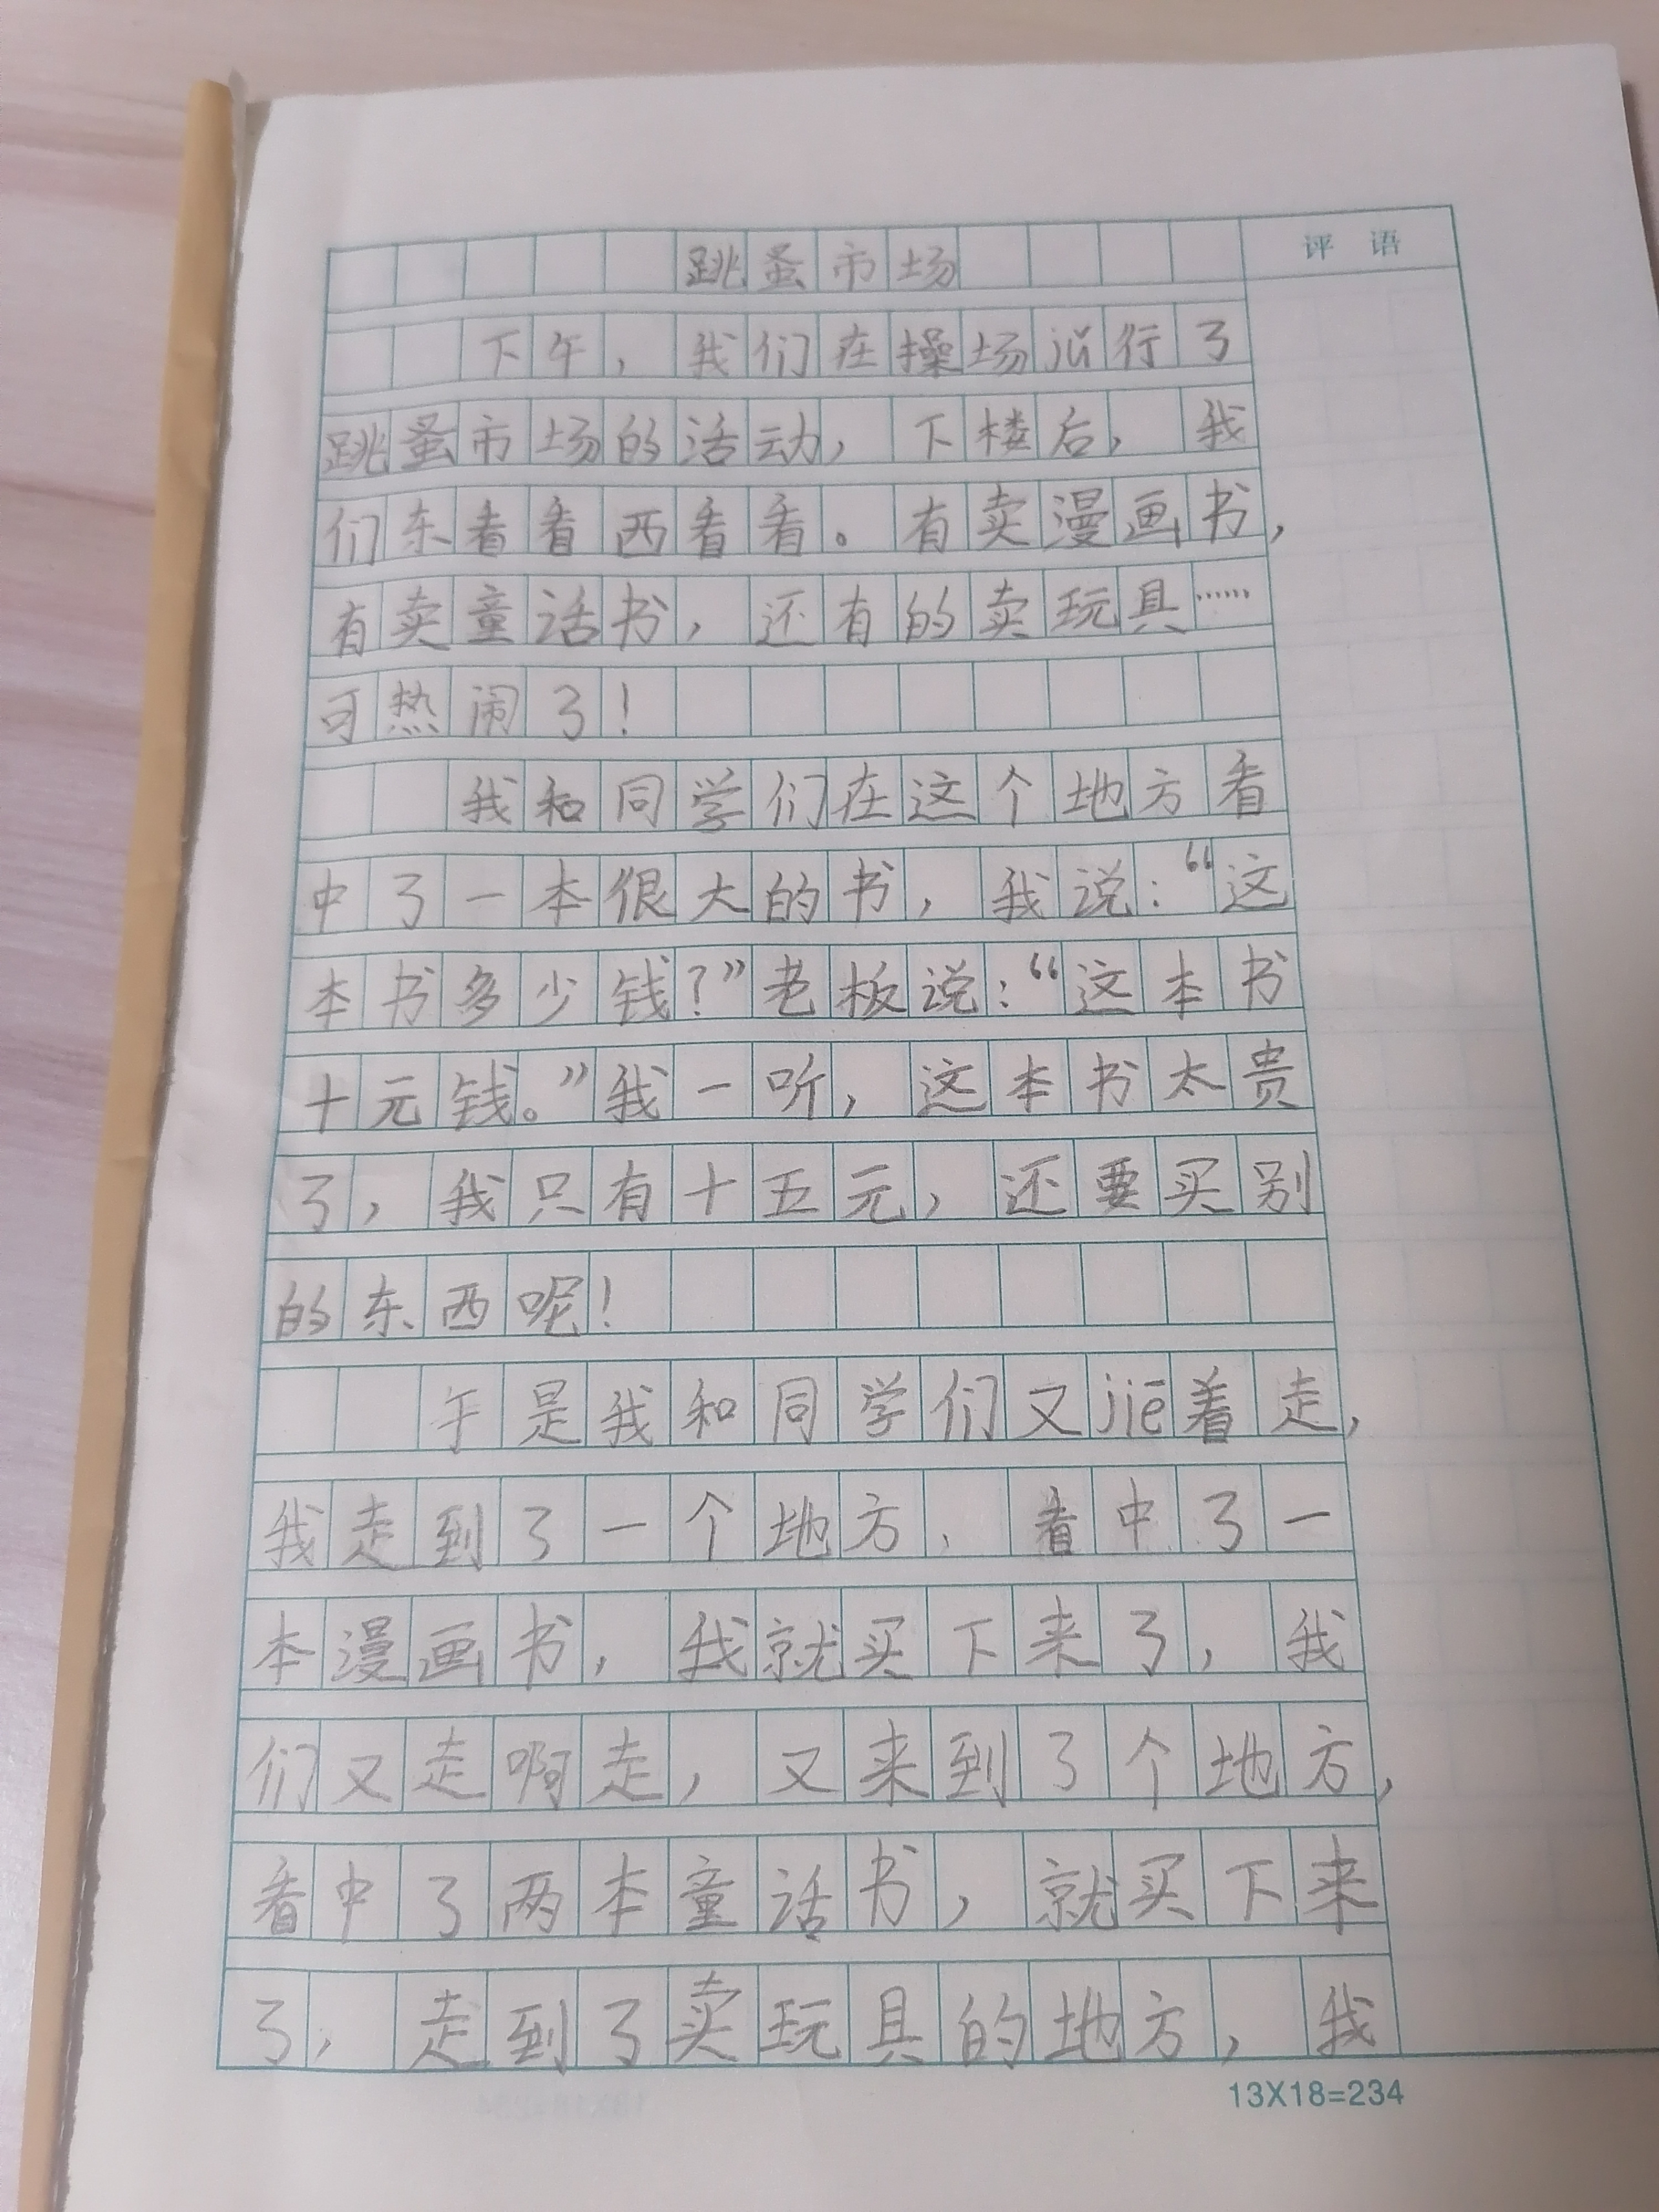 跳蚤市场
评语
下午，我们在操场jǔ行了
跳蚤市场的活动，下楼后，我
们东看看西看看。有卖漫画书，
有卖童话书，还有的卖玩具……
可热闹了！
我和同学们在这个地方看
中了一本很大的书，我说：“这
本书多少钱？”老板说：“这本书
十元钱。”我一听，这本书太贵
了，我只有十五元，还要买别
的东西呢！
于是我和同学们又jiē着走，
我走到了一个地方，看中了一
本漫画书，我就买下来了，我
们又走啊走，又来到了个地方，
看中了两本童话书，就买下来
了，走到了卖玩具的地方，我
13X18=234